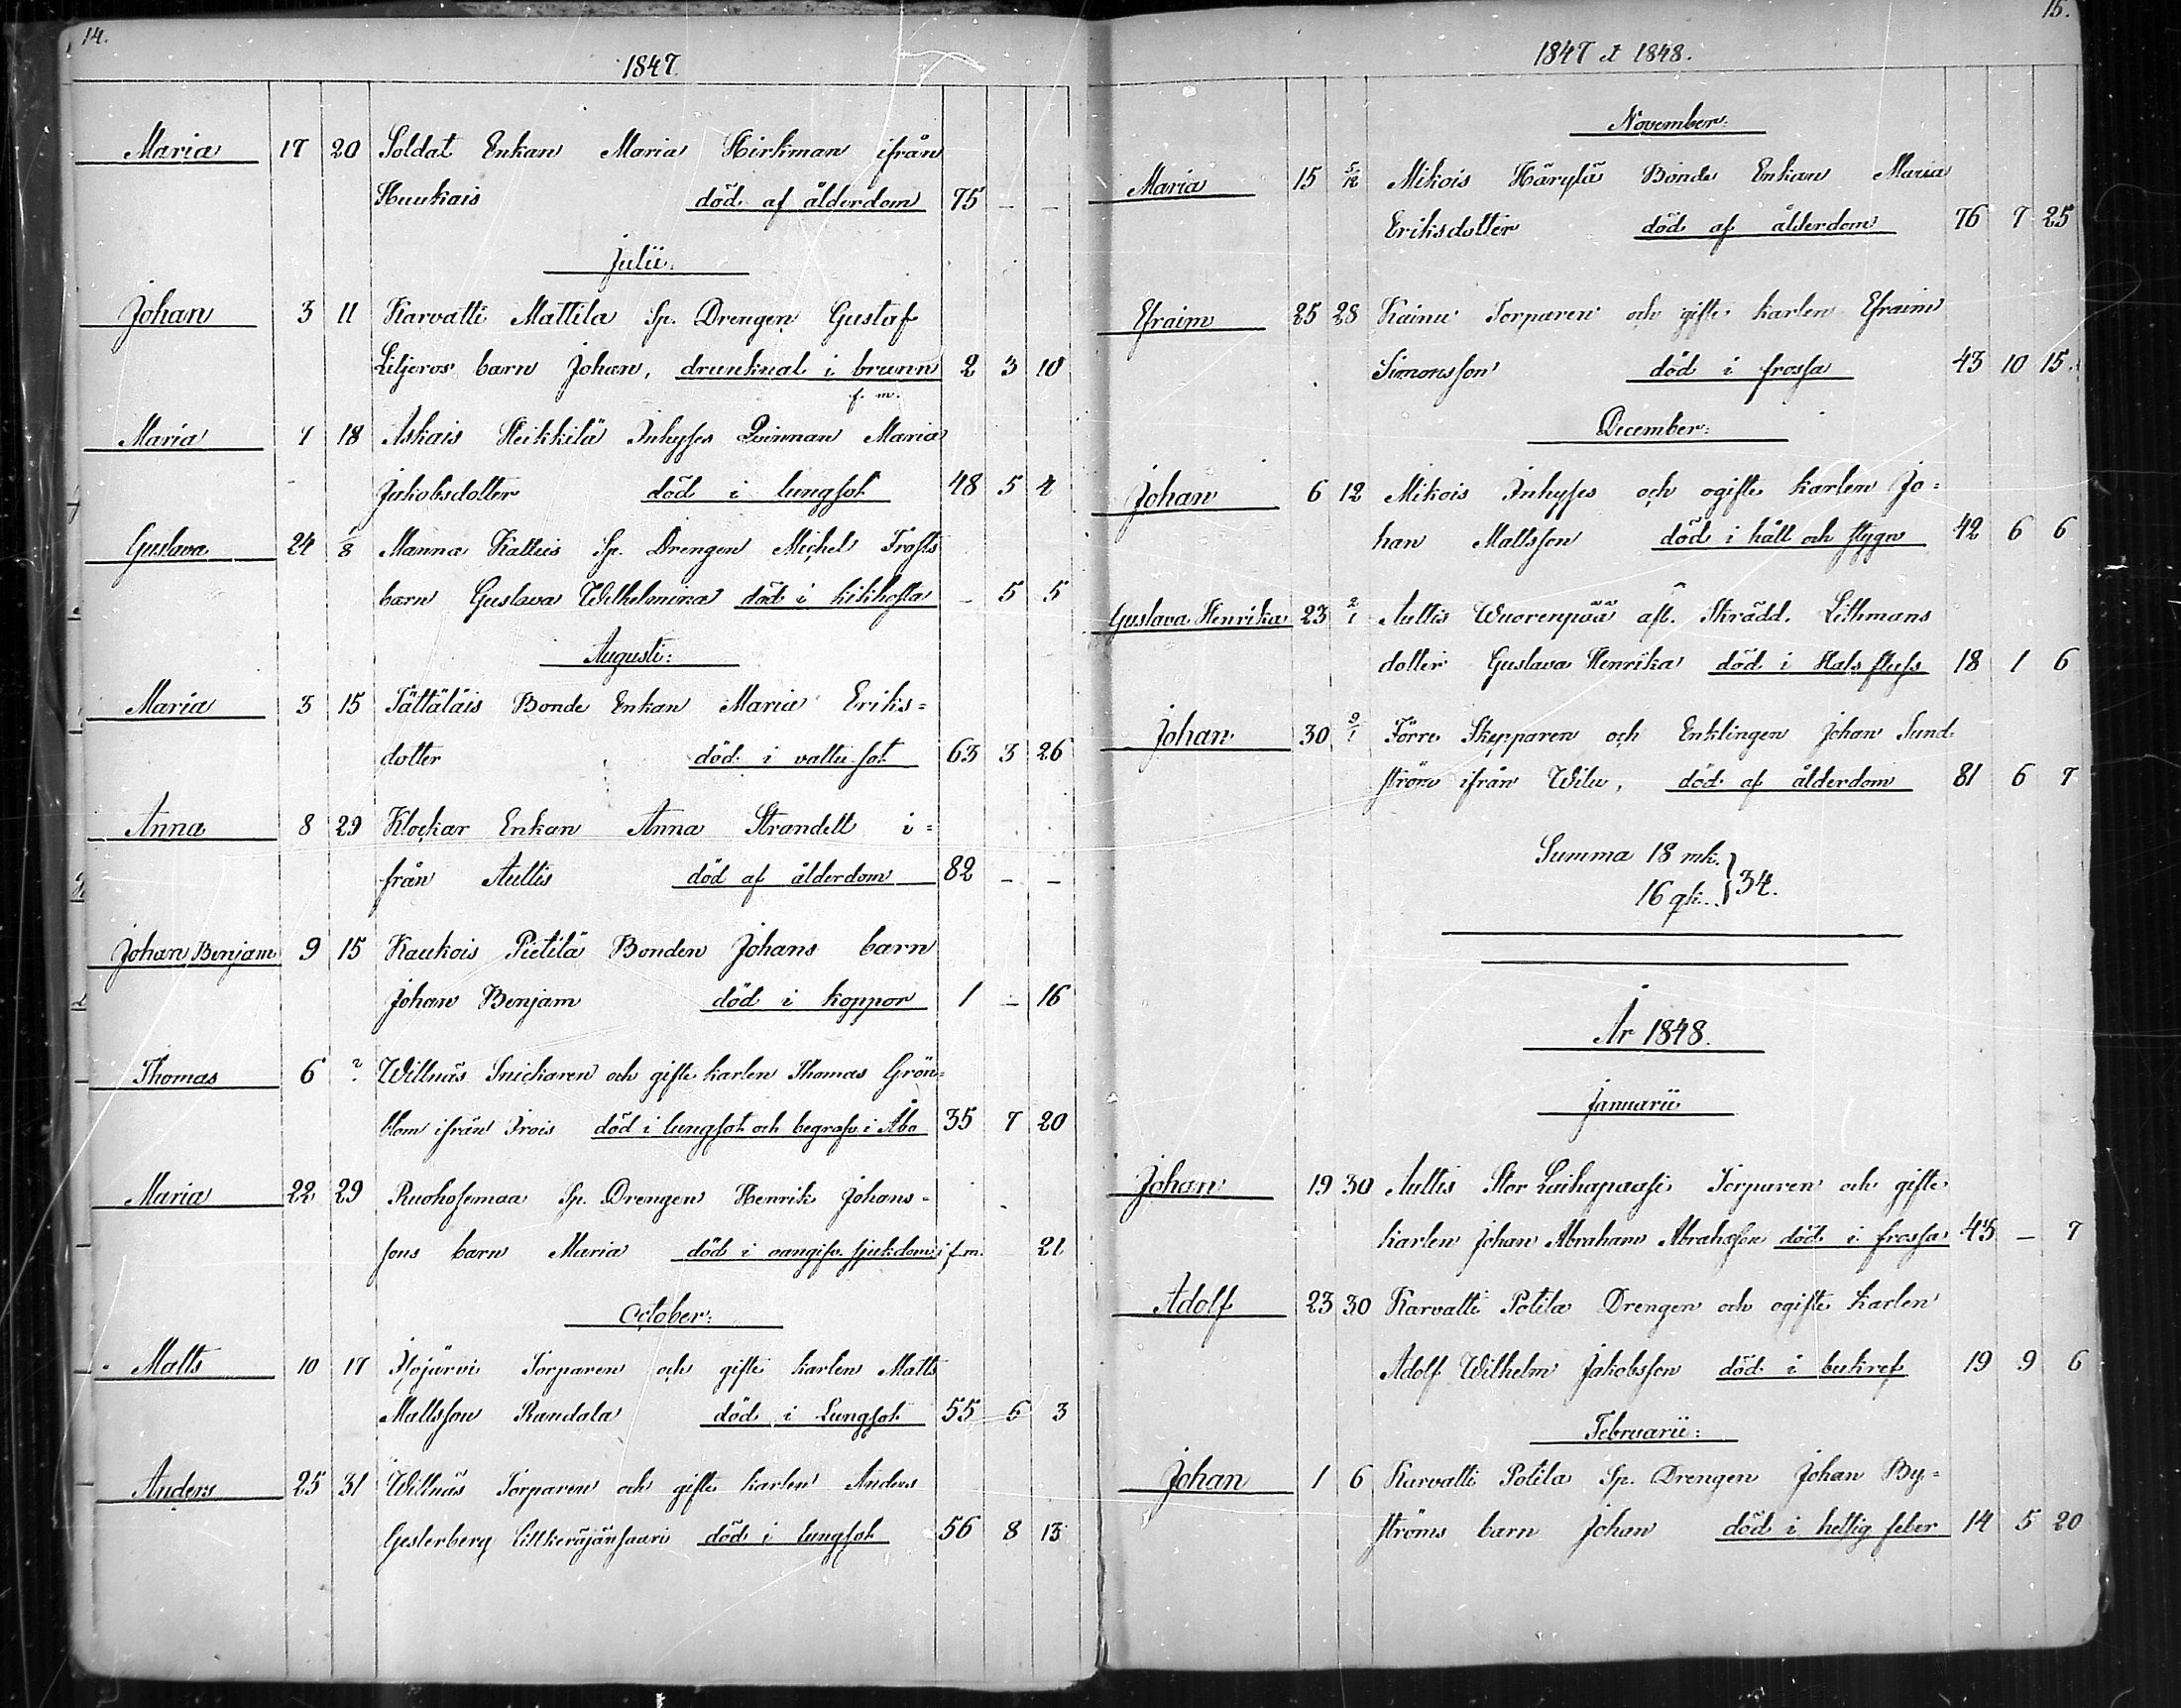 14.
1847.
Maria 17 20 Soldat Enkan Maria Hirkman ifrån
Huukais död af ålderdom 75 - -
Julii:
Johan 3 11 Karvatti Mattila Sp. Drengen Gustaf
Liljeros barn Johan, drunknat i brunn 2 3 10
f. m.
Maria 7 18 Askais Heikkilä Inhyses Qvinnan Maria
Jakobsdotter död i lungsot 48 5 4
Gustava 24 1/8 Manna Kattuis Sp. Drengen Michel Trasts
barn Gustava Wilhelmina död i kikhosta - 5 5
Augusti:
Maria 3 15 Tättäläis Bonde Enkan Maria Eriks=
dotter död i vattusot 63 3 26
Anna 8 29 Klockar Enkan Anna Strandell i=
från Auttis död af ålderdom 82 - -
Johan Benjam 9 15 Kaukois Pietilä Bonden Johans barn
Johan Benjam död i koppor 1 - 16
Thomas 6 ? Willnäs Snickaren och gifte karlen Thomas Grön=
blom ifrån Irois död i lungsot och begrafv. i Åbo 35 7 20
Maria 22 29 Ruohosemaa Sp. Drengen Henrik Johans=
sons barn Maria död i oangifv. sjukdom f.m. 21
October:
Matts 10 17 Pyojärvi Torparen och gifte karlen Matts
Mattsson Randala död i Lungsot 55 6 3
Anders 25 31 Willnäs Torparen och gifte karlen Anders
Gesterberg död i lungsot 56 8 13
15.
1847 et 1848.
November:
Maria 15 5/12 Mikois Härylä Bonde Enkan Maria
Eriksdotter död af ålderdom 76 7 25
Efraim 25 28 Kainu Torparen och gifte karlen Efraim
Simonsson död i frossa 43 10 15.
December:
Johan 6 12 Mikois Inhyses och ogifte karlen Jo=
han Mattsson död i håll och stygn 42 6 6
Gustava Henrika 23 2/1 Auttis Wuorenpää afl. Skrädd. Lithmans
dotter Gustava Henrika död i Hals fluss 18 1 6
Johan 30 2/1 Förre Skepparen och Enklingen Johan Sund
ström ifrån Wilu, död af ålderdom 81 6 7
Summa 18 mk.
16 qk. } 34.
År 1848.
Januarii
Johan 19 30 Auttis Stor Laihapaasi Torparen och gifte
karlen Johan Abraham Abrahason död i frossa 45 - 7
Adolf 23 30 Karvatti Potila Drengen och ogifte karlen
Adolf Wilhelm Jakobsson död i bukref 19 9 6
Februarii:
Johan 1 6 Karvatti Potila Sp. Drengen Johan By=
ströms barn Johan död i hettig feber 14 5 20